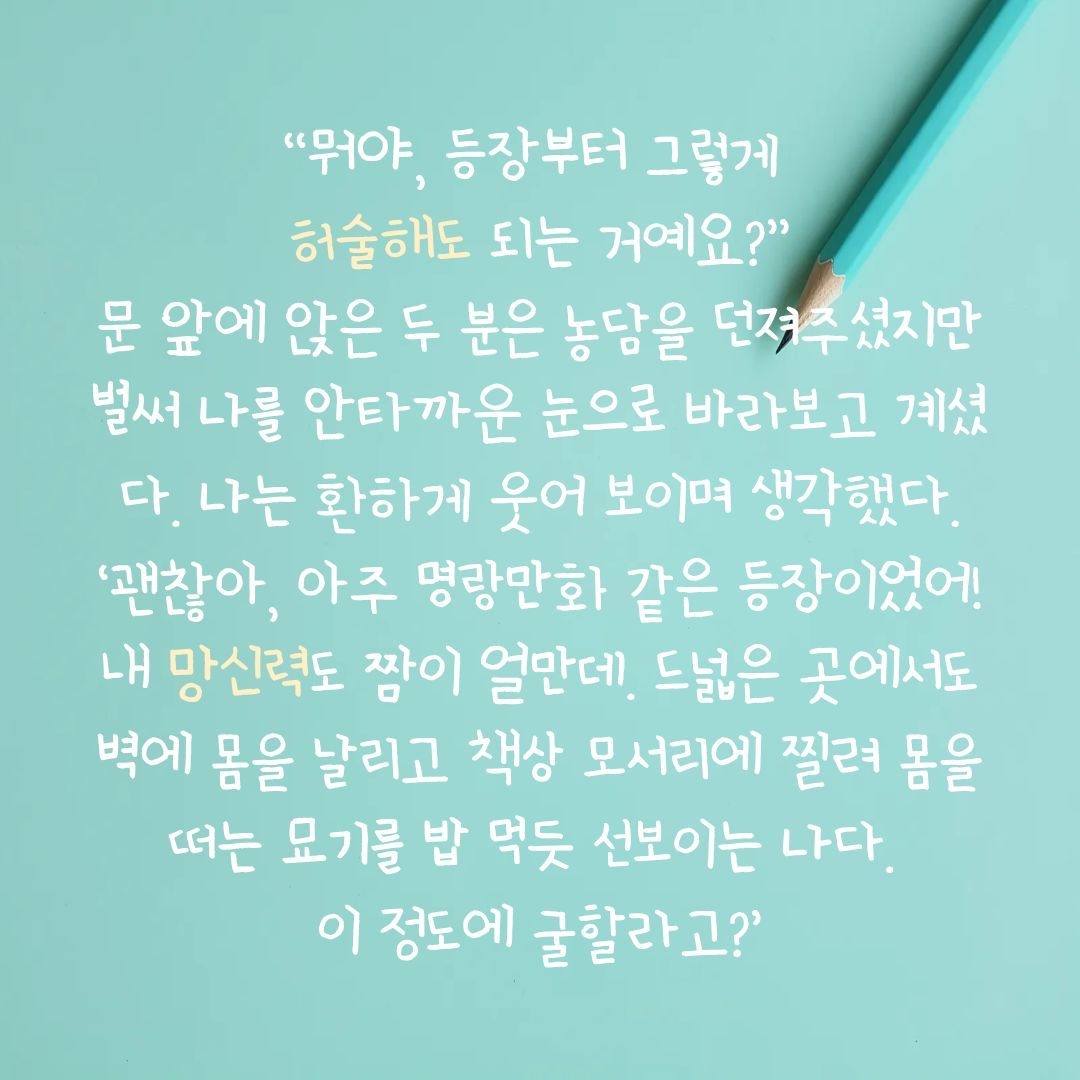 “뭐야, 등장부터 그렇게
허술해도 되는 거예요?”
문 앞에 앉은 두 분은 농담을 던져주셨지만
벌써 나를 안타까운 눈으로 바라보고 계셨
다. 나는 환하게 웃어 보이며 생각했다.
‘괜찮아, 아주 명랑만화 같은 등장이었어!
내 망신력도 짬이 얼만데. 드넓은 곳에서도
벽에 몸을 날리고 책상 모서리에 찔려 몸을
떠는 묘기를 밥 먹듯 선보이는 나다.
이 정도에 굴할라고?’